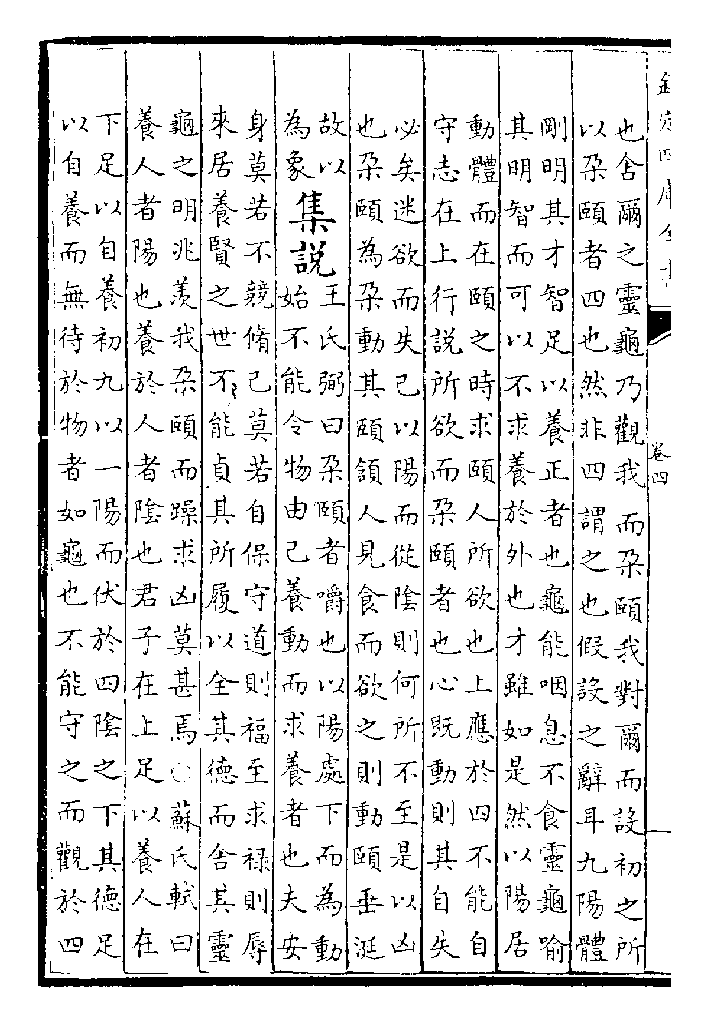 欽定四庫全書
卷四
也舍爾之靈龜乃觀我而朵頤我對爾而設初之所
以朵頤者四也然非四謂之也假設之辭耳九陽體
剛明其才智足以養正者也龜能咽息不食靈龜喻
其明智而可以不求養於外也才雖如是然以陽居
動體而在頤之時求頤人所欲也上應於四不能自
守志在上行説所欲而朵頤者也心既動則其自失
必矣迷欲而失己以陽而從陰則何所不至是以凶
也朵頤為朵動其頤頷人見食而欲之則動頤垂涎
故以
為象
集説
王氏弼曰朵頤者嚼也以陽處下而為動
始不能令物由己養動而求養者也夫安
身莫若不競脩己莫若自保守道則福至求祿則辱
來居養賢之世不能貞其所履以全其德而舍其靈
龜之明兆羨我朵頤而躁求凶莫甚焉○蘇氏軾曰
養人者陽也養於人者陰也君子在上足以養人在
下足以自養初九以一陽而伏於四陰之下其德足
以自養而無待於物者如龜也不能守之而觀於四